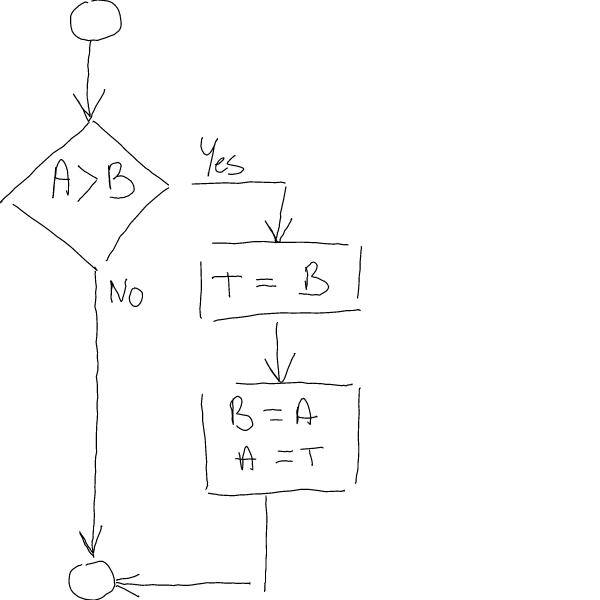 A>B
Yes
NO
T = B
B = A
A = T